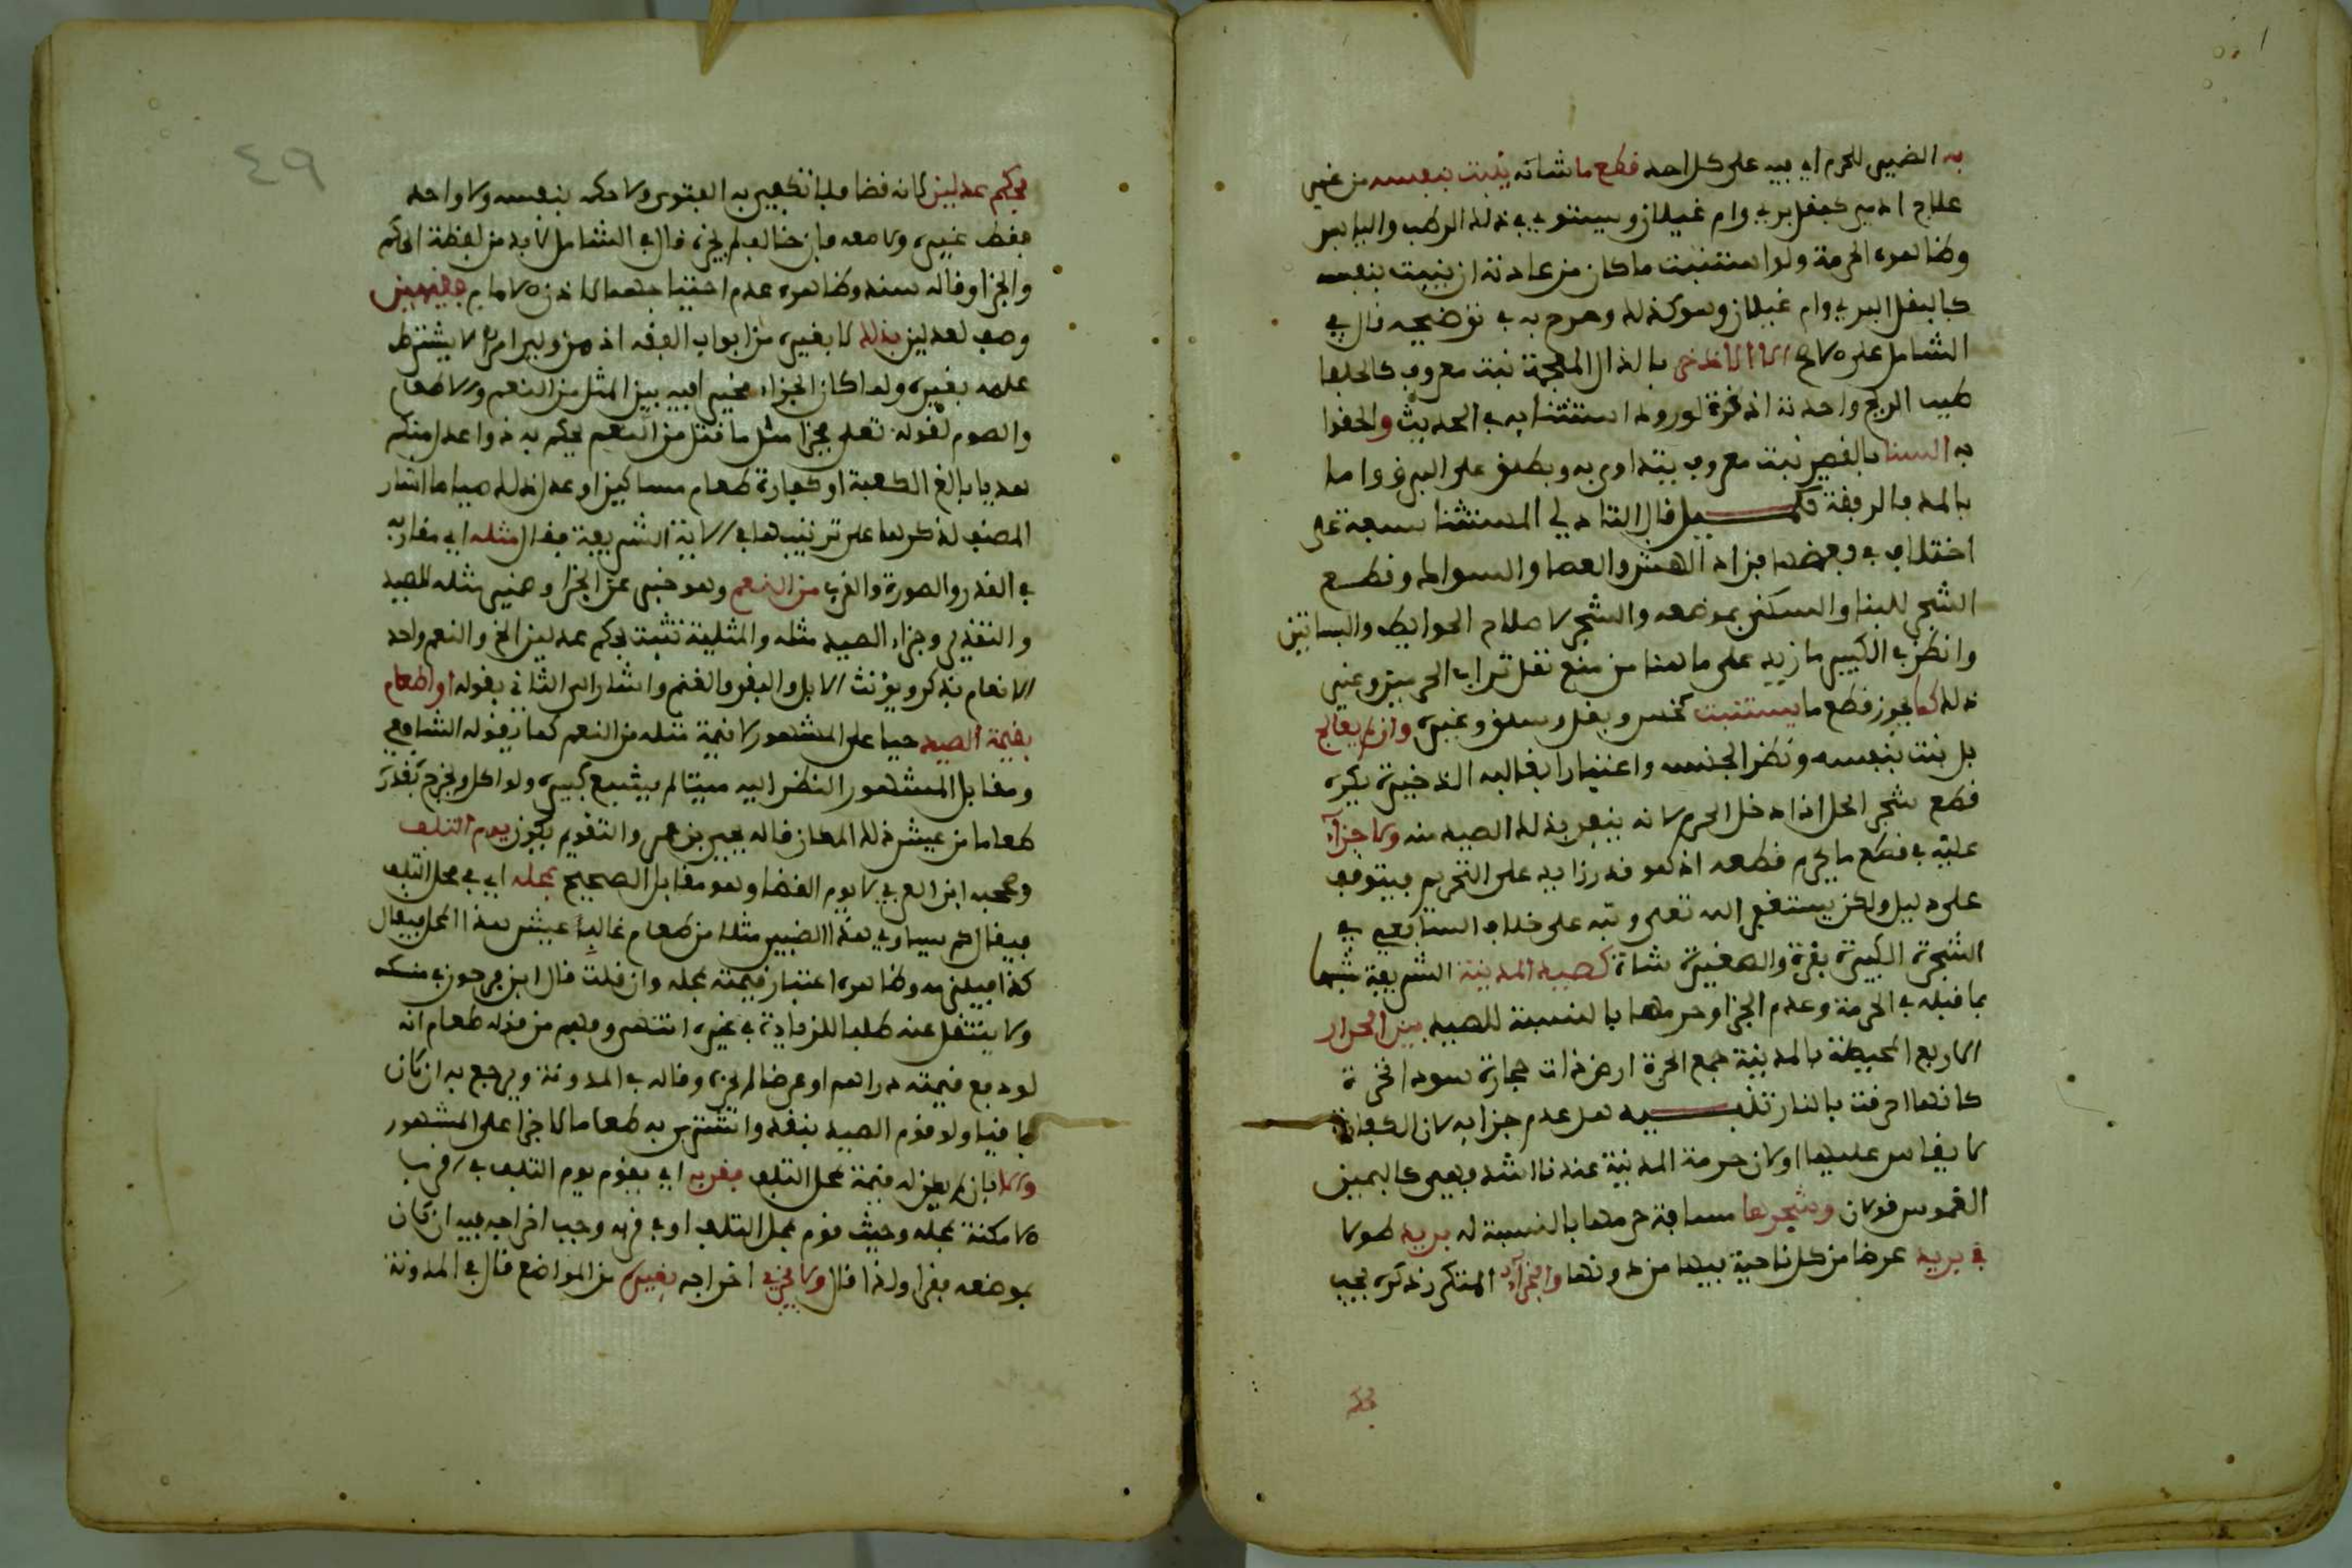 به الضمير للحرم اي فيه على كل احد قطع ما شانه ينبت بنفسه من غير
علاج ادمي كبقل بري وام غيلان ويستوي في ذلك الرطب واليابس
وظاهره الحرمة ولو استنبت ما كان من عادته ان ينبت بنفسه
كالبقل البري وام غيلان وهو كذلك وصرح به في توضيحه قال في
الشامل على الاصح الا الاذخر بالذال المعجمة نبت معروف كالحلفا
طيب الريح واحدته اذخرة لورود استثنايه في الحديث والحقوا
به السنا بالقصر نبت معروف يتداوى به ويطلق على البرق واما
بالمد فالرفعة تكميل قال التادلي المستثنا سبعة على
اختلاف في بعضها فزاد الهش والعصا والسواك وقطع
الشجر للبنا والسكنى بموضعه والشجر لاصلاح الحوايط والبساتين
وانظر في الكبير ما زيد على ما هنا من منع نقل تراب الحرمين وغير
ذلك كما يجوز قطع ما يستنبت كخس وبقل وسلق وغيره وان لم يعالج
بل نبت بنفسه ونظر الجنسه واعتبارا بغالبه الذخيرة يكره
قطع شجر الحل اذا دخل الحرم لانه ينفر بذلك الصيد منه ولا جزاء
عليه في قطع ما يحرم قطعه اذ هو قدر زايد على التحريم فيتوقف
على دليل ولكن يستغفر الله تعلى ونبه على خلاف الشافعي في
الشجرة الكبيرة بقرة والصغيرة شاة كصيد المدينة الشريفة شبها
بما قبله في الحرمة وعدم الجزا وحرمها بالنسبة للصيد بين الحرار
الاربع المحيطة بالمدينة جمع الحرة ارض ذات حجارة سود نخرة
كانها احرقت بالنار تنبيه هل عدم جزايه لان الكفارة
لا يقاس عليها او لان حرمة المدينة عندنا اشد فهي كاليمين
الغموس قولان وشجرها مسافة حرمها بالنسبة له بريد طولا
في بريد عرضا من كل ناحية فيها من دونها والجزاء المتكرر ذكره يجب
بحكم
٤٩
بحكم عدلين لانه قضا فلا تكفي به الفتوى ولا حكمه بنفسه ولا واحد
فقط غيره ولا معه فان خالف لم يجزه قال في الشامل لا بد من لفظة الحكم
والجزا وقاله سند وظاهره عدم احتياجهما لاذن الامام فقيهين
وصف لعدلين بذلك لا بغيره من ابواب الفقه اذ من ولي امرا لا يشترط
علمه بغيره ولما كان الجزاء مخيرا فيه بين المثل من النعم والاطعام
والصوم لقوله تعلى فجزا مثل ما قتل من النعم يحكم به ذوا عدل منكم
هديا بالغ الكعبة او كفارة طعام مساكين او عدل ذلك صياما اشار
المصنف لذكرها على ترتيبها في الاية الشريفة فقال مثله اي مقاربه
في القدر والصورة والقرب من النعم وهو خبر عن الجزا وضمير مثله للصيد
والتقدير وجزاء الصيد مثله والمثلية تثبت بحكم عدلين الخ والنعم واحد
الانعام يذكر ويونث الابل والبقر والغنم واشار الى الثاني بقوله او اطعام
بقيمة الصيد حيا على المشهور لا قيمة مثله من النعم كما يقوله الشافعي
ومقابل المشهور النظر اليه ميتا لم يشبع كبيره ولو اكل ويخرج بقدره
طعاما من عيش ذلك المكان قاله يحيى بن عمر والتقويم يكون يوم التلف
وصححه ابن العربي لا يوم القضا وهو مقابل الصحيح بمحله اي في محل التلف
فيقال كم يساوي هذا الضبي مثلا من طعام غالب عيش هذا المحل فيقال
كذا فيلزمه وظاهره اعتبار قيمته بمحله وان قلت قال ابن فرحون في منسكه
ولا ينتقل عنه طلبا للزيادة في غيره انتهى وفهم من قوله طعام انه
لو دفع قيمته دراهم او عرضا لم يجزه وقاله في المدونة ويرجع به ان كان
باقيا ولو قوم الصيد بنقد واشترى به طعاما لاجزا على المشهور
والا بان لم يكن له قيمة بمحل التلف فقربه اي يقوم يوم التلف في اقرب
الامكنة بمحله وحيث قوم بمحل التلف او في قربه وجب اخراجه فيه ان كان
بموضعه فقرا ولذا قال ولا يجزي اخراجه بغيره من المواضع قال في المدونة